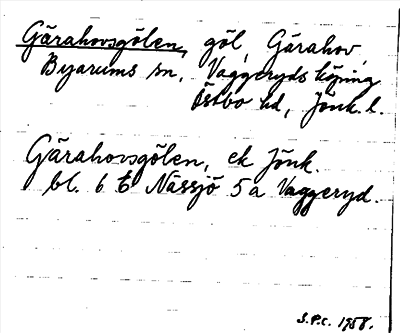 Gärahovsgölen, göl, Gärahov,
Byarums sn, Vaggeryds köping
Östbo hd, Jönk. l.
Gärahovsgölen, ek Jönk.
bl. 6 Nässjö 5a Vaggeryd.
S.P.C. 1958.